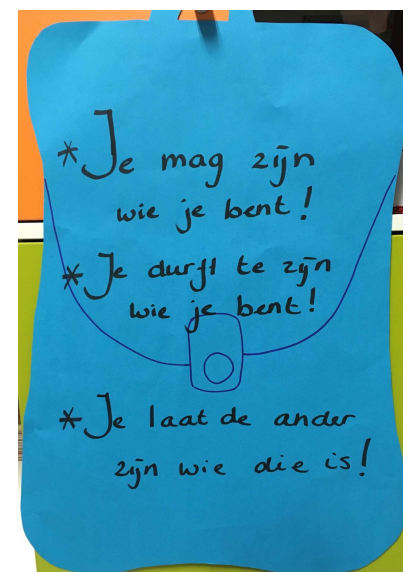 * Je mag zijn
wie je bent!
* Je durft te zijn
wie je bent!
* Je laat de ander
zijn wie die is!